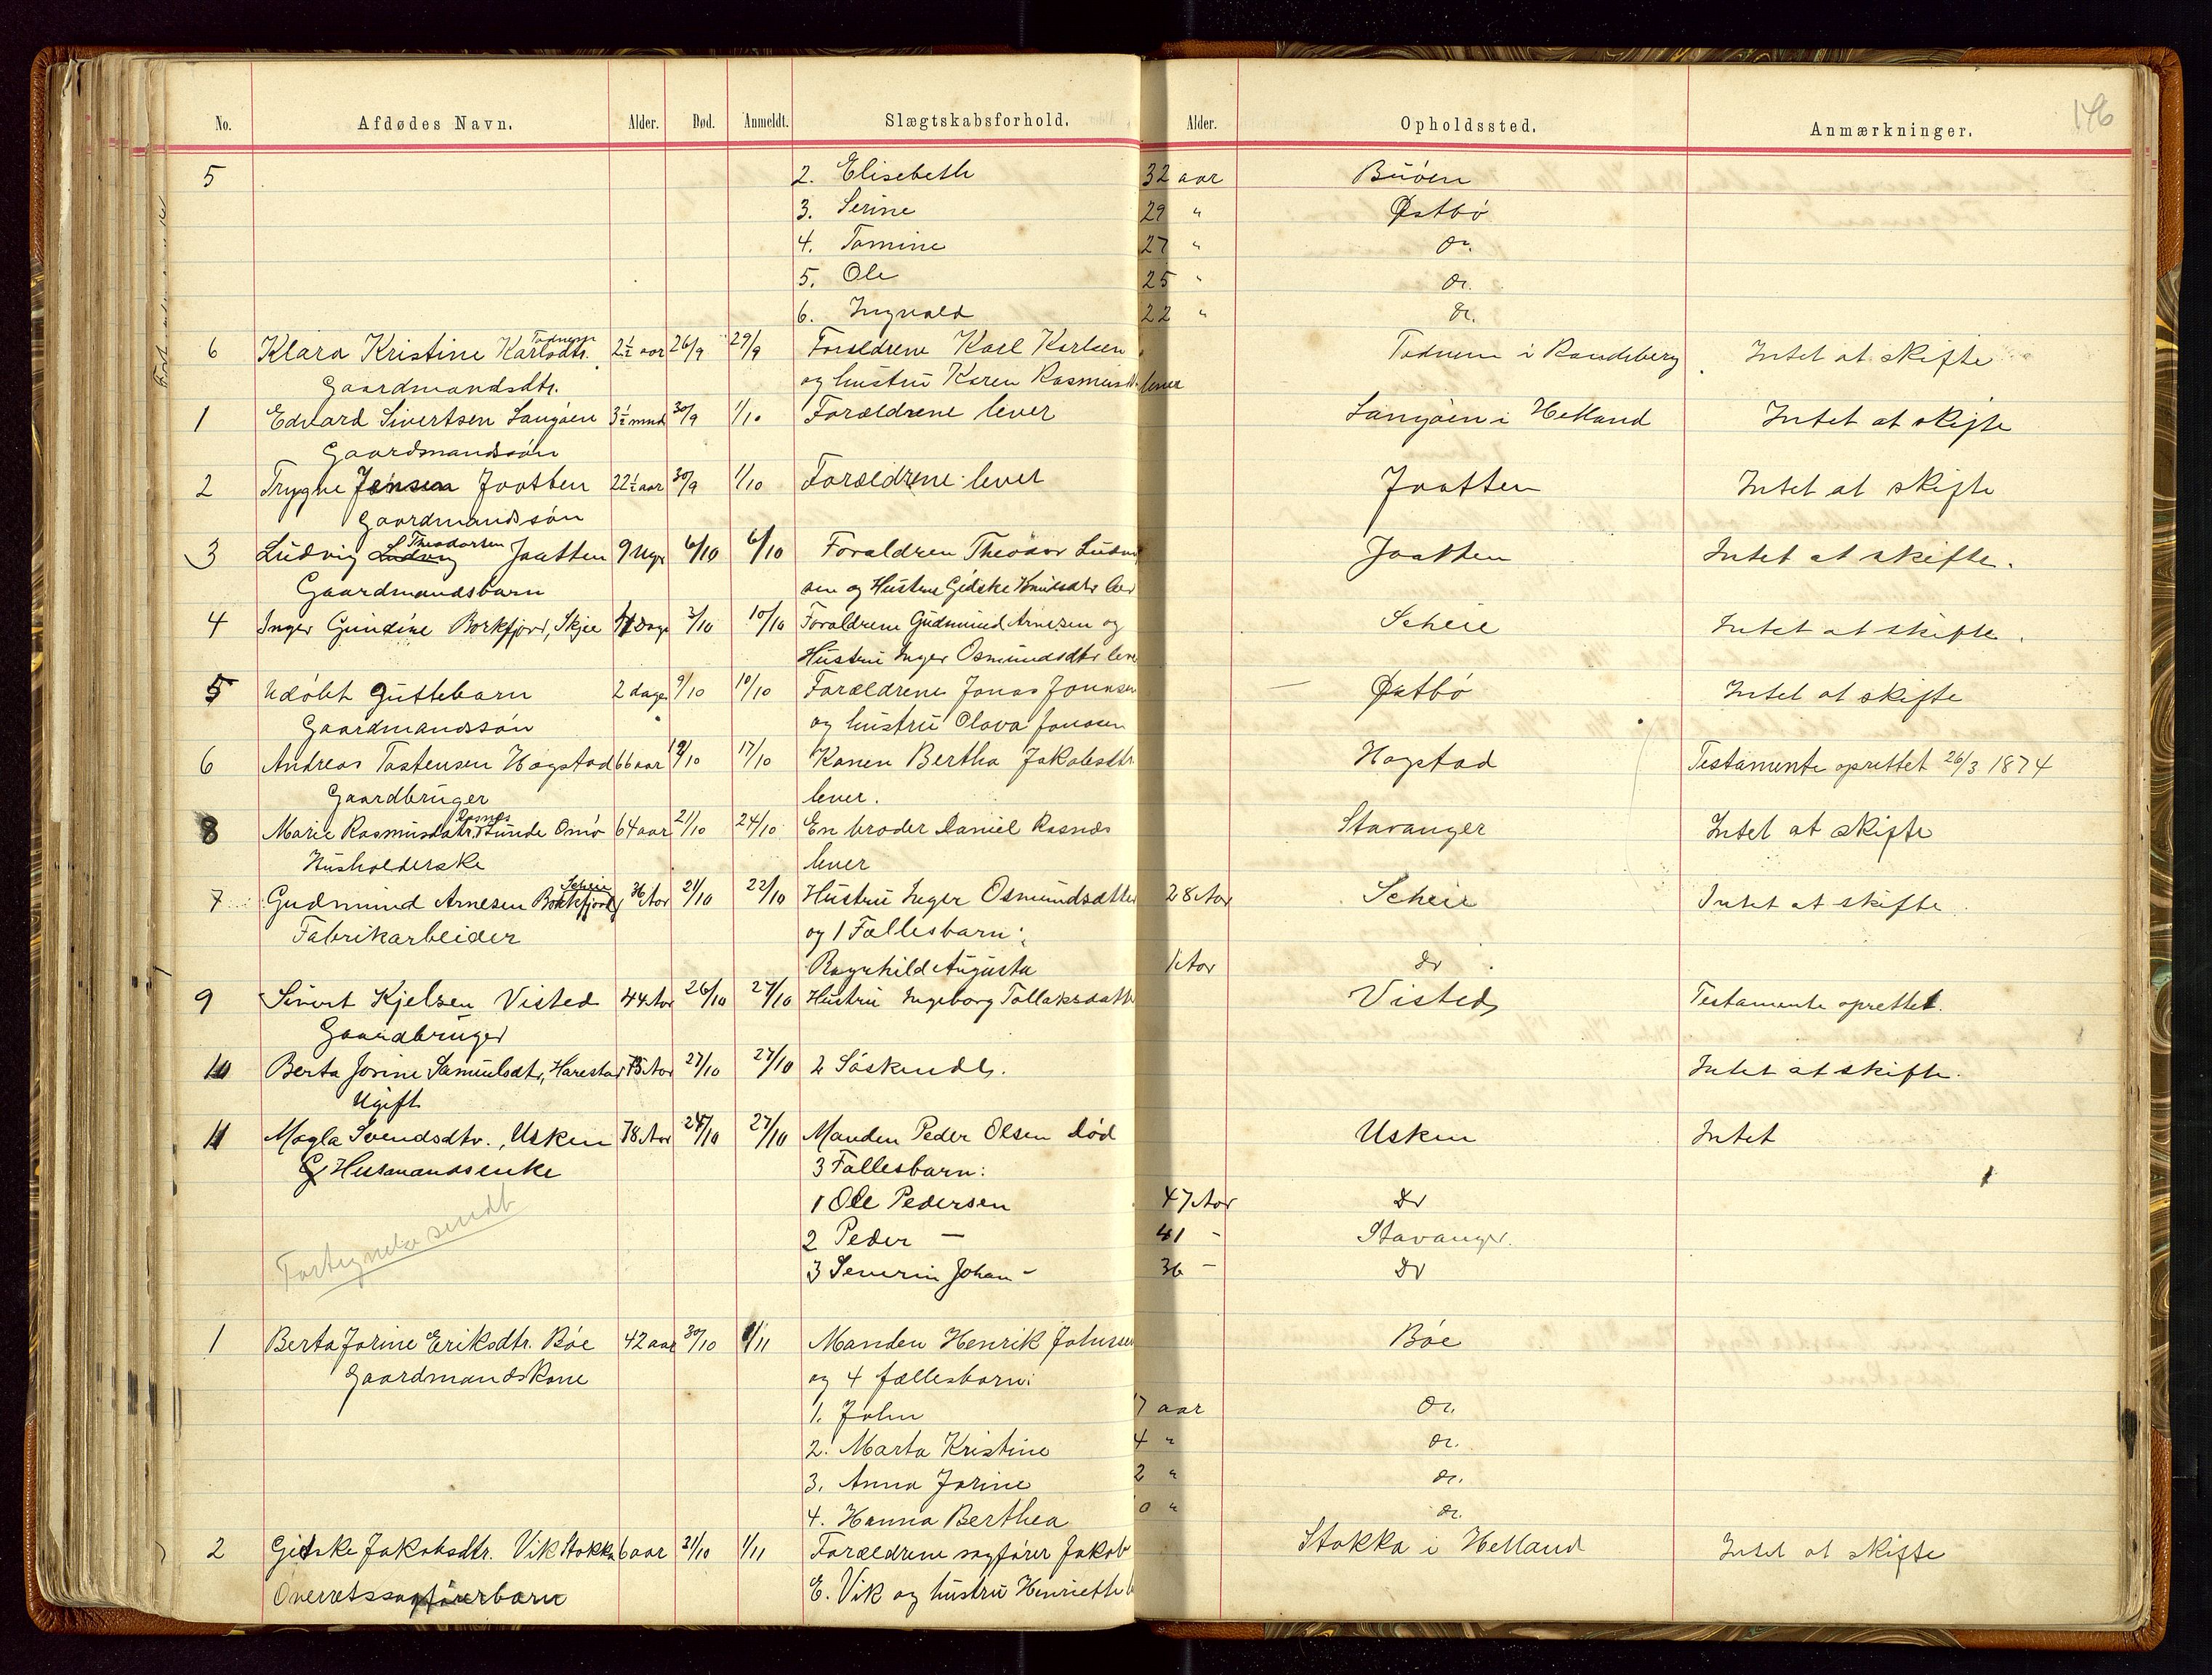 146
No. Afdødes Navn. Alder. Død. Anmeldt. Slægtskabsforhold. Alder. Opholdssted. Anmærkninger.
5 2. Elisebeth 32 aar Buøen
3. Serine 29 " Østbø
4. Tomine 27 " do.
5. Ole 25 " do.
6. Ingvald 22 " do.
Todnem
6 Klara Kristine Karlsdtr. 2½ aar 26/9 29/9 Forældrene Karl Karlsen Todnem i Randeberg Intet at skifte
Gaardmandsdtr. og hustru Karen Rasmusd. lever
1 Edvard Sivertsen Langøen 3½ mnd 30/9 1/10 Forældrene lever Langøen i Hetland Intet at skifte
Gaardmandssøn
2 Trygve Jensen Jaatten 22½ aar 30/9 1/10 Forældrene lever Jaatten Intet at skifte
Gaardmandssøn
Theodorsen
3 Ludvig Ludvig Jaatten 9 Uger 6/10 6/10 Forældren Theodor Ludvig Jaatten Intet at skifte.
Gaardmandsbarn sen og Hustru Gidske Knudsdtr lev
4 Inger Gundine Borkfjord, Skjie Dage 3/10 10/10 Forældrene Gudmund Arnesen og Scheie Intet at skifte.
Hustru Inger Osmundsdtr leve
5 Udøbt Guttebarn 2 dage 9/10 10/10 Forældrene Jonas Jonasen Østbø Intet at skifte
Gaardmandssøn og hustru Olava Jonasen
6 Andreas Tostensen Hogstad 66 aar 12/10 17/10 Konen Bertha Jakobsdtr. Hogstad Testamente oprettet 26/3 1874
Gaardbruger lever.
Rosnes
8 Marie Rasmusdatr. Stunde Omø 64 aar 21/10 24/10 En broder Daniel Rosnes Stavanger Intet at skifte
Husholderske lever
Scheie
7 Gudmund Arnesen Borkfjord 36 Aar 21/10 22/10 Hustru Inger Osmundsdatter 28 Aar Scheie Intet at skifte.
Fabrikarbeider og 1 Fællesbarn:
Ragnhild Augusta 1 Aar do
9 Sivert Kjelsen Visted 44 Aar 26/10 27/10 Hustru Ingeborg Tollaksdatt Visted Testamente oprettet.
Gaardbruger
10 Berta Jorine Samuelsdtr, Harestad 75 Aar 27/10 27/10 2 Søskende. Intet at skifte.
Ugift
11 Magla Svendsdtr., Usken 78 Aar 24/10 27/10 Manden Peder Olsen død Usken Intet
G Husmandsenke 3 Fællesbarn:
1 Ole Pedersen 47 Aar do
Fortegnelse sendt 2 Peder — 41 - Stavanger.
3 Severin Johan - 36 - do
1 Berta Jorine Eriksdtr. Bøe 42 aar 30/10 1/11 Manden Henrik Johnsen Bøe
Gaardmandskone og 4 fællesbarn:
1. John 7 aar do.
2. Marta Kristine 4 " do.
3. Anna Jorine 2 " do.
4. Hanna Berthea 0 " do.
2 Gidske Jakobsdtr. Vik Stokka 6 aar 21/10 1/11 Forældrene sagfører Jakob Stokka i Hetland Intet at skifte
Overetssagførerbarn E. Vik og hustru Henriette